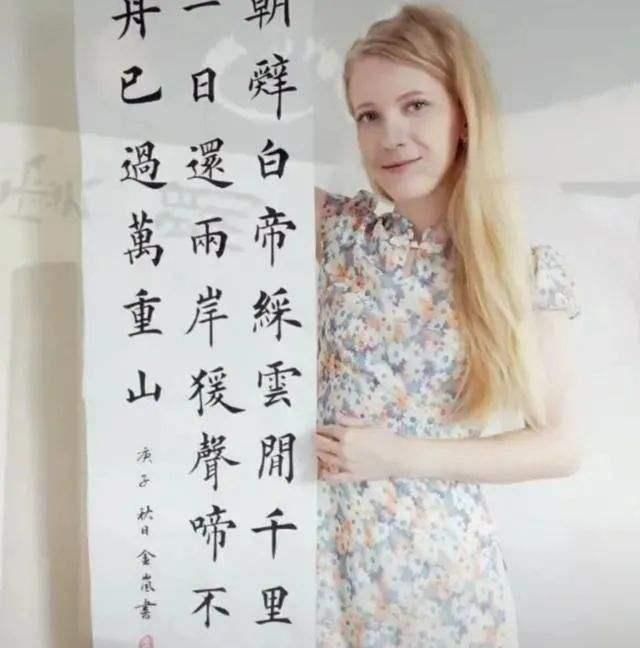 朝辤白帝綵雲閒千里
一日還兩岸猨聲啼不
舟已過萬重山
庚子秋日金嵐書